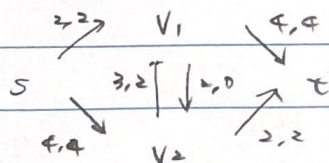 2,2 V₁ 4,4
s 3,2 2,0 t
4,4 V₂ 2,2